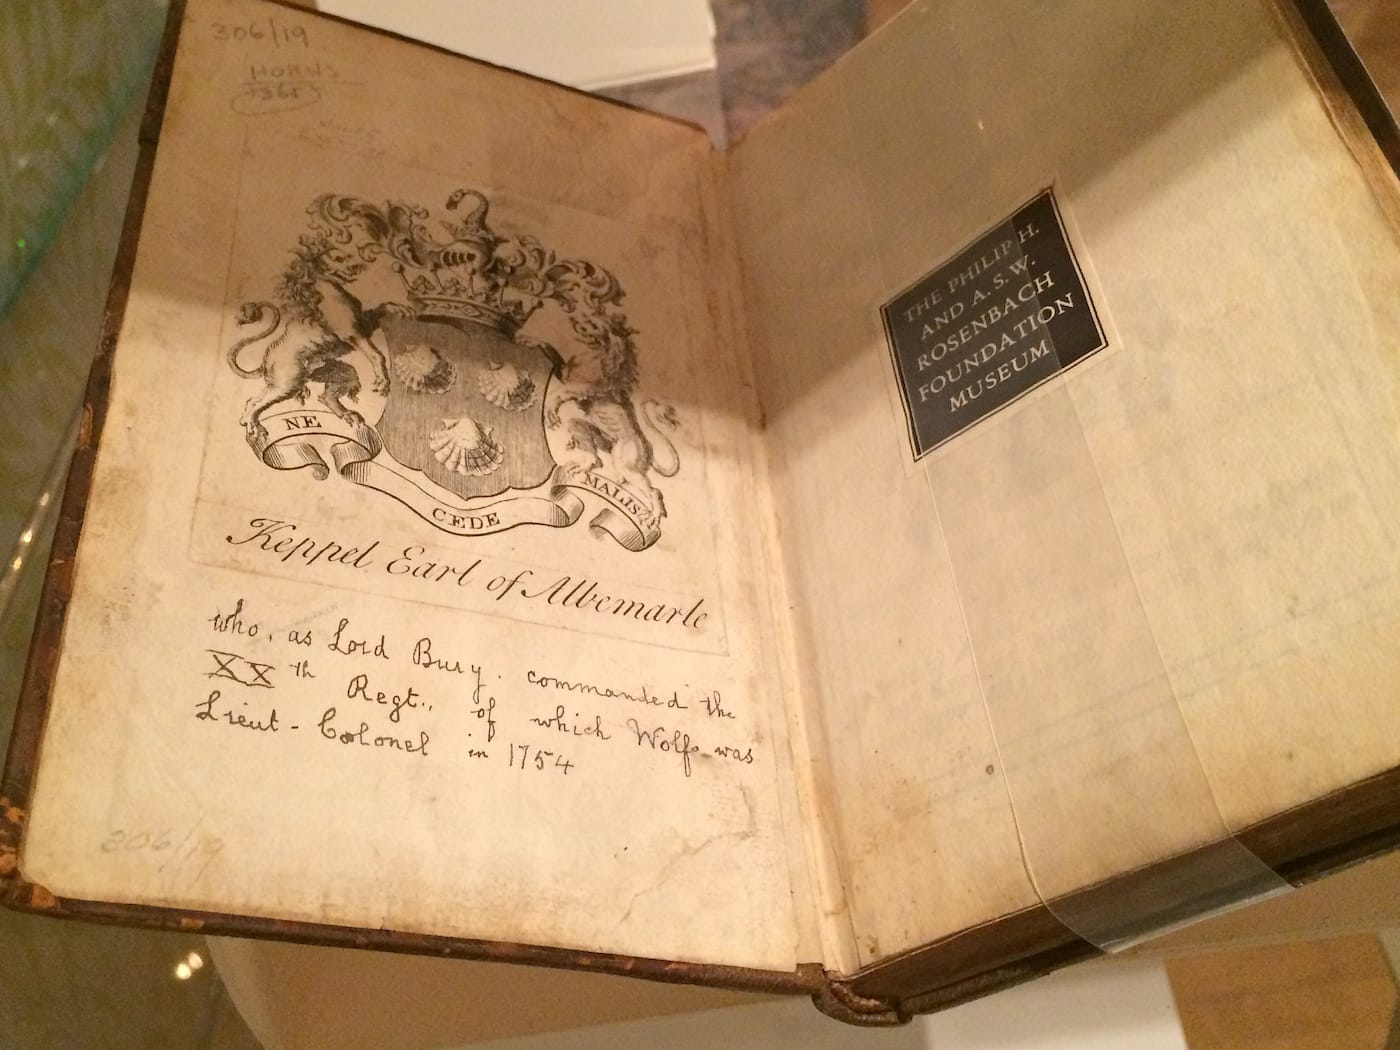 306/19
HORNS
NE
CEDE
MALIS
Keppel Earl of Albemarle
who, as Lord Bury, commanded the
XXth Regt., of which Wolfe was
Lieut-Colonel in 1754
206/19
THE PHILIP H.
AND A. S. W.
ROSENBACH
FOUNDATION
MUSEUM